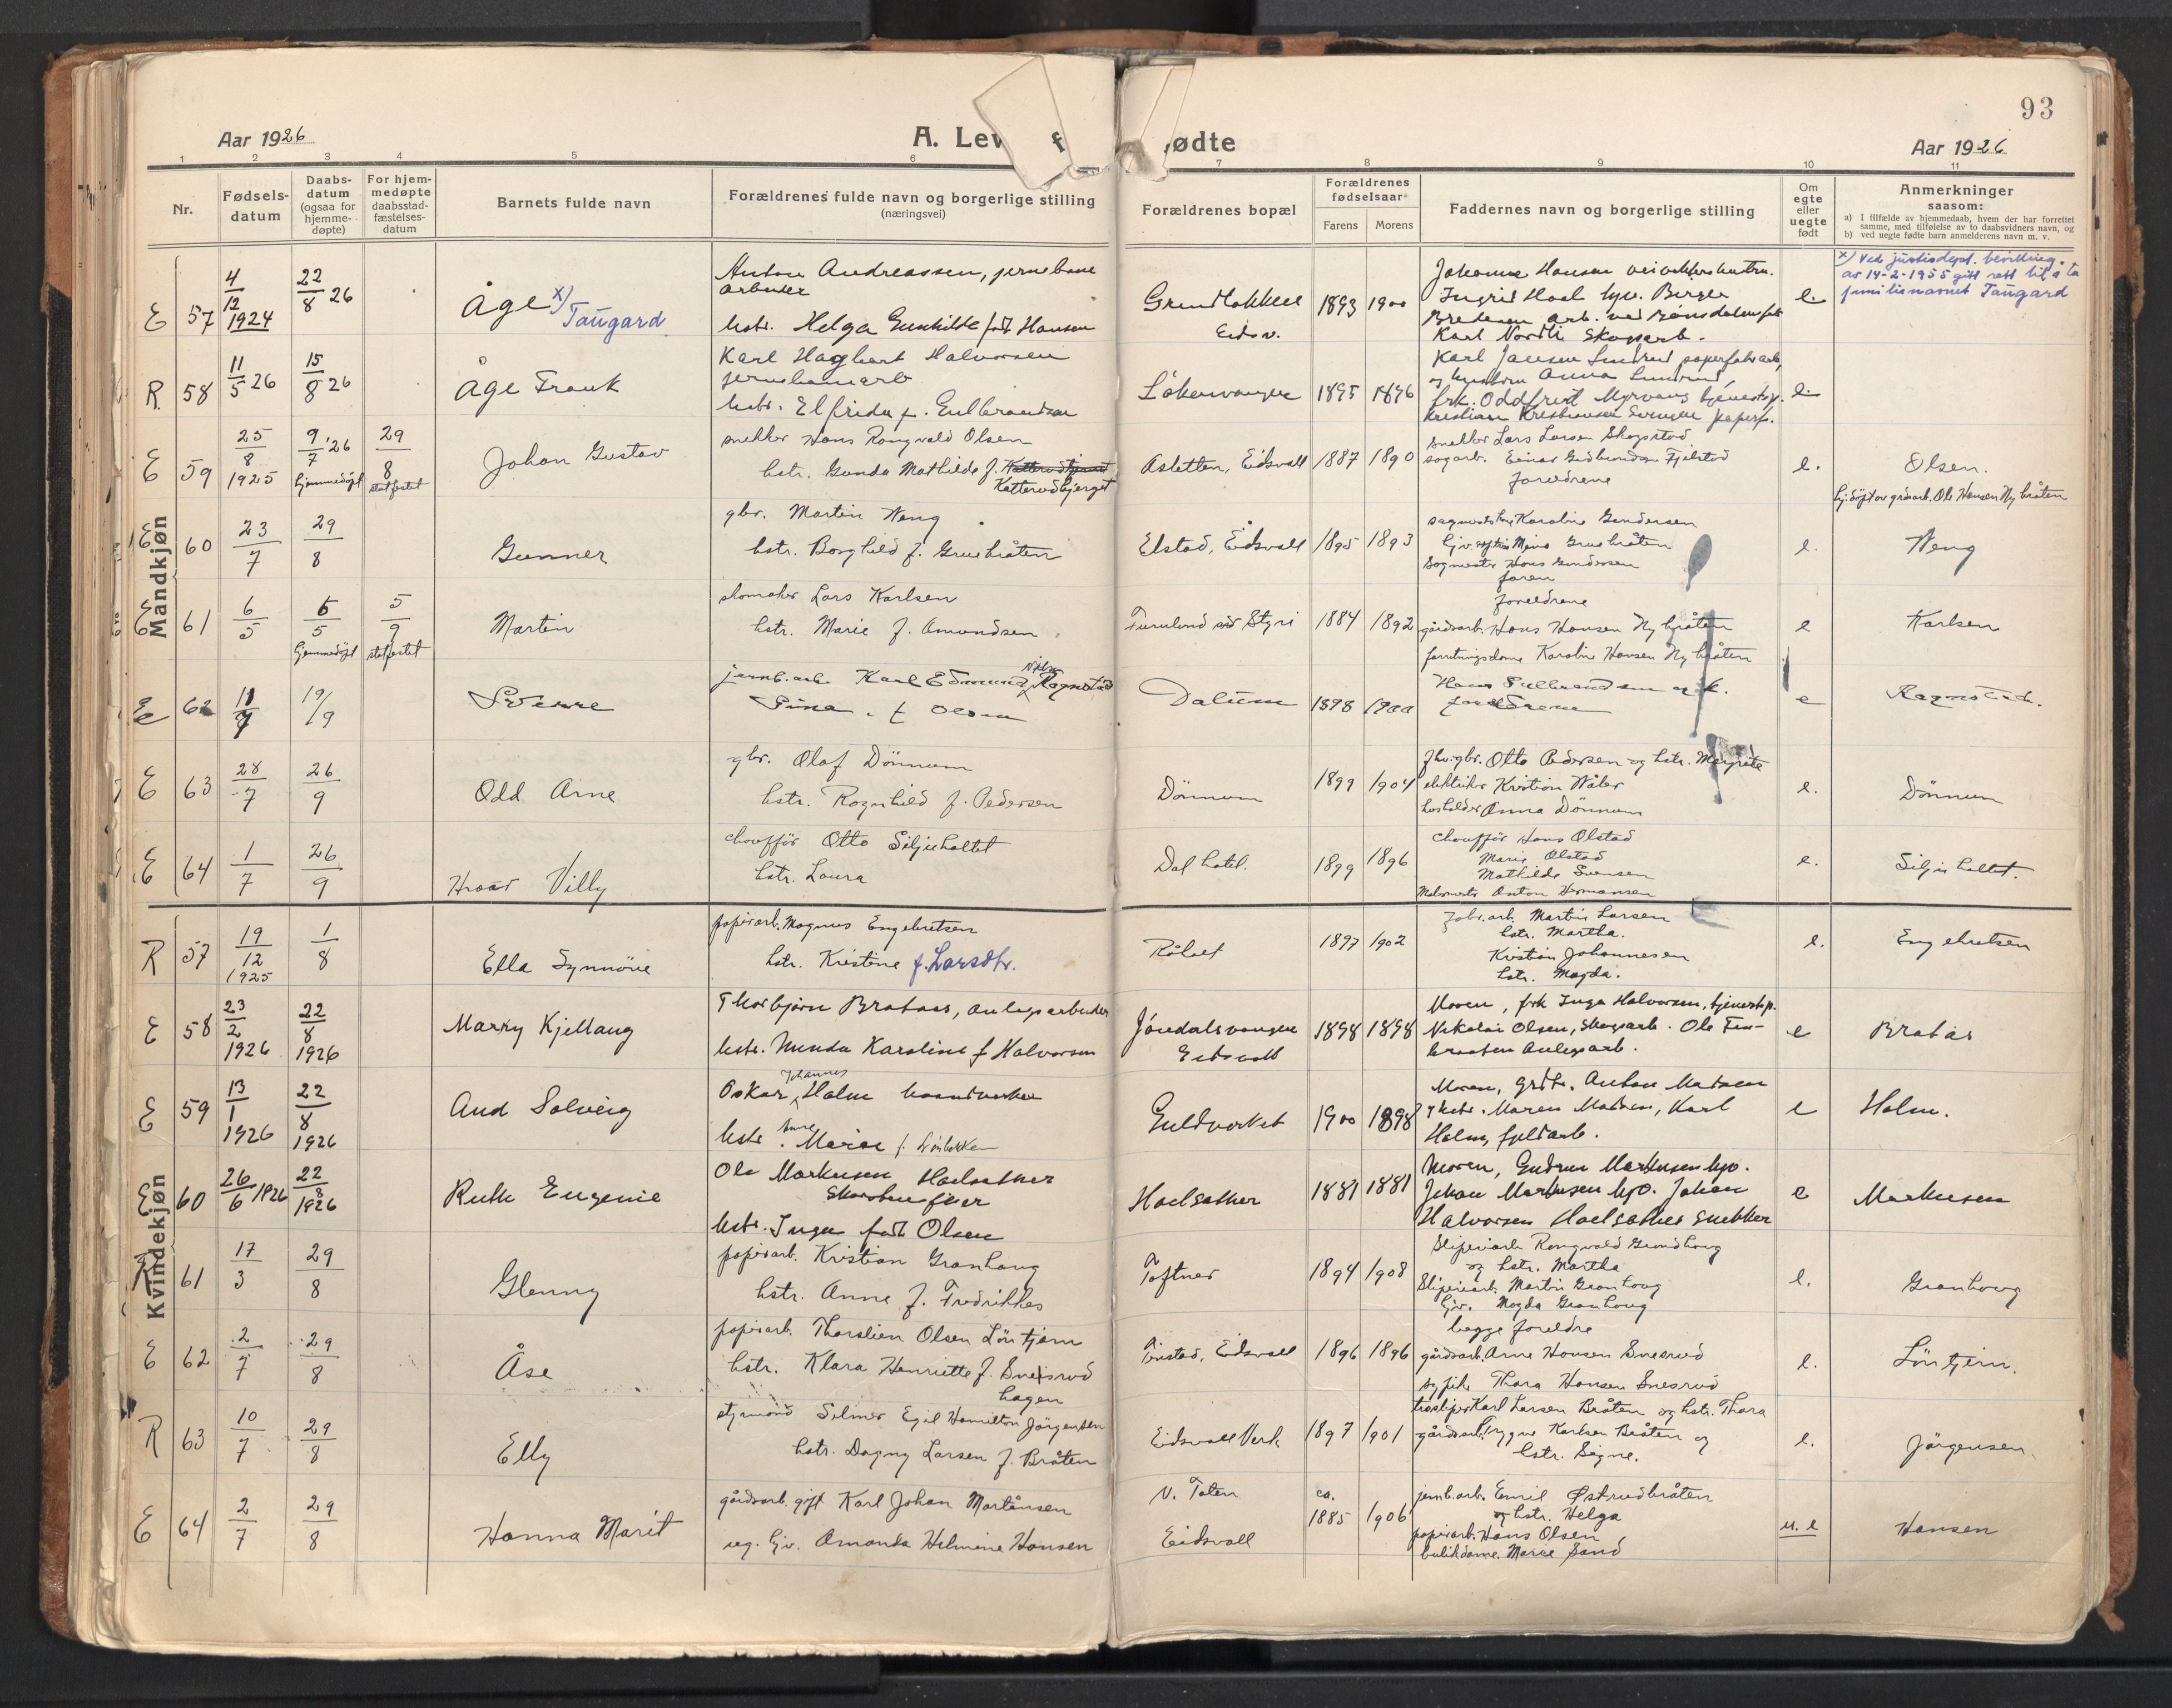 93
Aar 1926
A. Lev f ødte
Aar 1926
1 2 3 4 5 6 7 8 9 10 11
Nr.
Fødsels-
datum
Daabs-
datum
(ogsaa for
hjemme-
døpte)
For hjem-
medøpte
daabsstad-
fæstelses-
datum
Barnets fulde navn
Forældrenes fulde navn og borgerlige stilling
(næringsvei)
Forældrenes bopæl
Forældrenes
fødselsaar
Farens Morens
Faddernes navn og borgerlige stilling
Om
egte
eller
uegte
født
Anmerkninger
saasom:
a) I tilfælde av hjemmedaab, hvem der har forrettet
samme, med tilføielse av to daabsvidners navn, og
b) ved uegte fødte barn anmelderens navn m. v.
Mandkjøn
E 57 4/12 1924 22/8 26
Åge x) Taugard
Anton Andreassen, jernbane
arbeider
hstr. Helga Gunhilde født Hansen
Eidsv.
1893 1900
Johanne Hansen
Ingrid Hoel hjv. Birger
Karl Nordli Skogsarb.
e.
x) Ved justisdept. bevilling.
av 14-2-1955 gitt rett til å ta
familienavnet Taugard
R. 58 11/5 26 15/8 26
Åge Frank
Karl Hagbart Halvorsen
jernbanearb
hstr. Elfrida f. Gulbrandsen
1895 1896
Karl Jansen Sundrud papirfabr.arb,
og hustru Anna Sundrud,
frk. Oddfrid Myrvang tjenestep.
e.
E 59 25/8 1925 9/7 '26 hjemmedöpt 29/8 stadfestet
Johan Gustav
snekker Hans Rangvald Olsen
hstr. Gunda Mathilde f.
Katterudbjerget
Asletten, Eidsvoll
1887 1890
snekker Lars Larsen Skogstad
sagarb. Einar Gudbrandsen Fjelstad
foreldrene
e.
Olsen.
hj.döpt av grdsarb. Ole Hansen Nybråten
E 60 23/7 29/8
Gunnar
gbr. Martin Weng
hstr. Borghild f. Gruebråten
Elstad, Eidsvoll
1895 1893
sagmesters Karoline Gundersen
hjv. Mina Gruebråten
Sagmester Hans Gundersen
faren
e.
Weng
E 61 6/5 6/5 hjemmedöpt 5/9 stadfestet
Martin
skomaker Lars Karlsen
hstr. Marie f. Amundsen
Furulund v/ Styri
1884 1892
foreldrene
gårdsarb. Hans Hansen Nybråten
forretningsdame Karoline Hansen Nybråten
e
Karlsen
E 62 11/7 19/9
Sverre
jernb.arb. Karl Edmund Ragnstad
f. Olsen
Dalum
1898 1900
Hans Gulbrandsen og h.
foreldrene
e
Ragnstad.
E 63 28/7 26/9
Odd Arne
gbr. Olaf Dönnum
hstr. Ragnhild f. Pedersen
Dönnum
1899 1904
fhv. gbr. Otto Pedersen og hstr. Margrete
elektriker Kristian Wåler
husholder Anna Dönnum
e.
Dönnum
E 64 1/7 26/9
Hroar Villy
chaufför Otto Siljuholtet
hstr. Laura
Dal hotel.
1899 1896
chaufför Hans Olstad
Marie Olstad
Mathilde Svensen
Malermester Anton Hermansen
e.
Siljuholtet.
Kvindekjøn
R 57 19/12 1925 1/8
Ella Synnöve
papirarb. Magnus Engebretsen
hstr. Kristine f. Larsdtr.
Råholt
1897 1902
fabr.arb. Martin Larsen
hstr. Martha.
Kristian Johannesen
hstr. Magda.
e.
Engebretsen
E 58 23/2 1926 22/8 1926
Marry Kjellaug
Thorbjörn Brataas, anlegsarbeider
hstr. Nunda Karoline f Halvorsen
Jöndalsvangen
Eidsvoll
1898 1898
Moren, frk Inga Halvorsen, tjenestep.
Nikolai Olsen, Skogsarb. Ole Fin-
braaten Anlegsarb.
e
Bratås
E 59 13/1 1926 22/8 1926
Aud Solveig
Oskar Johannes Holm haandverker
hstr. Marie f.
Guldverket
1900 1898
Moren, grdbr. Anton Madsen
og hstr. Maren Madsen, Karl
Holm,
e
Holm.
E 60 26/6 1926 22/8 1926
Ruth Eugenie
Ole Markusen Hoelsæther
Skorstensfeier
hstr. Inga født Olsen
Hoelsæther
1881 1881
Moren, Gudrun Markusen hjv.
Johan Markusen hjv. Johan
Halvorsen Hoelsæther Snekker
e
Markusen
R 61 17/3 29/8
Glenny
papirarb. Kristian Granhaug
hstr. Anne f. Fredrikkes
Toftner
1894 1908
Sliperiarb. Rangvald Granhaug
og hstr. Martha
Sliperiarb. Martin Granhaug
hjv. Magda Granhaug
begge foreldre
e.
Granhaug
E 62 2/7 29/8
Åse
papirarb. Thorstien Olsen Löntjern
hstr. Klara Henriette f. Snesrud
hagen
Tönstad, Eidsvoll
1896 1896
gårdsarb. Arne Hansen Snesrud
sypike Thora Hansen Snesrud
e.
Löntjern.
R 63 10/7 29/8
Elly
styrmand Selmer Egil Hamilton Jörgensen
hstr. Dagny Larsen f. Bråten
Eidsvoll Verk
1897 1901
tresliper Karl Larsen Bråten og hstr. Thora
gårdsarb. Trygve Karlsen Bråten og
hstr. Signe.
e.
Jörgensen.
E 64 2/7 29/8
Hanna Marit
gårdsarb. gift Karl Johan Martinsen
ug. hjv. Amanda Helmine Hansen
V. Toten
Eidsvoll
ca. 1885 1906
jernb.arb. Emil Østrudbråten
og hstr. Helga
papirarb. Hans Olsen
butikdame. Marie Sand
u. e
Hansen